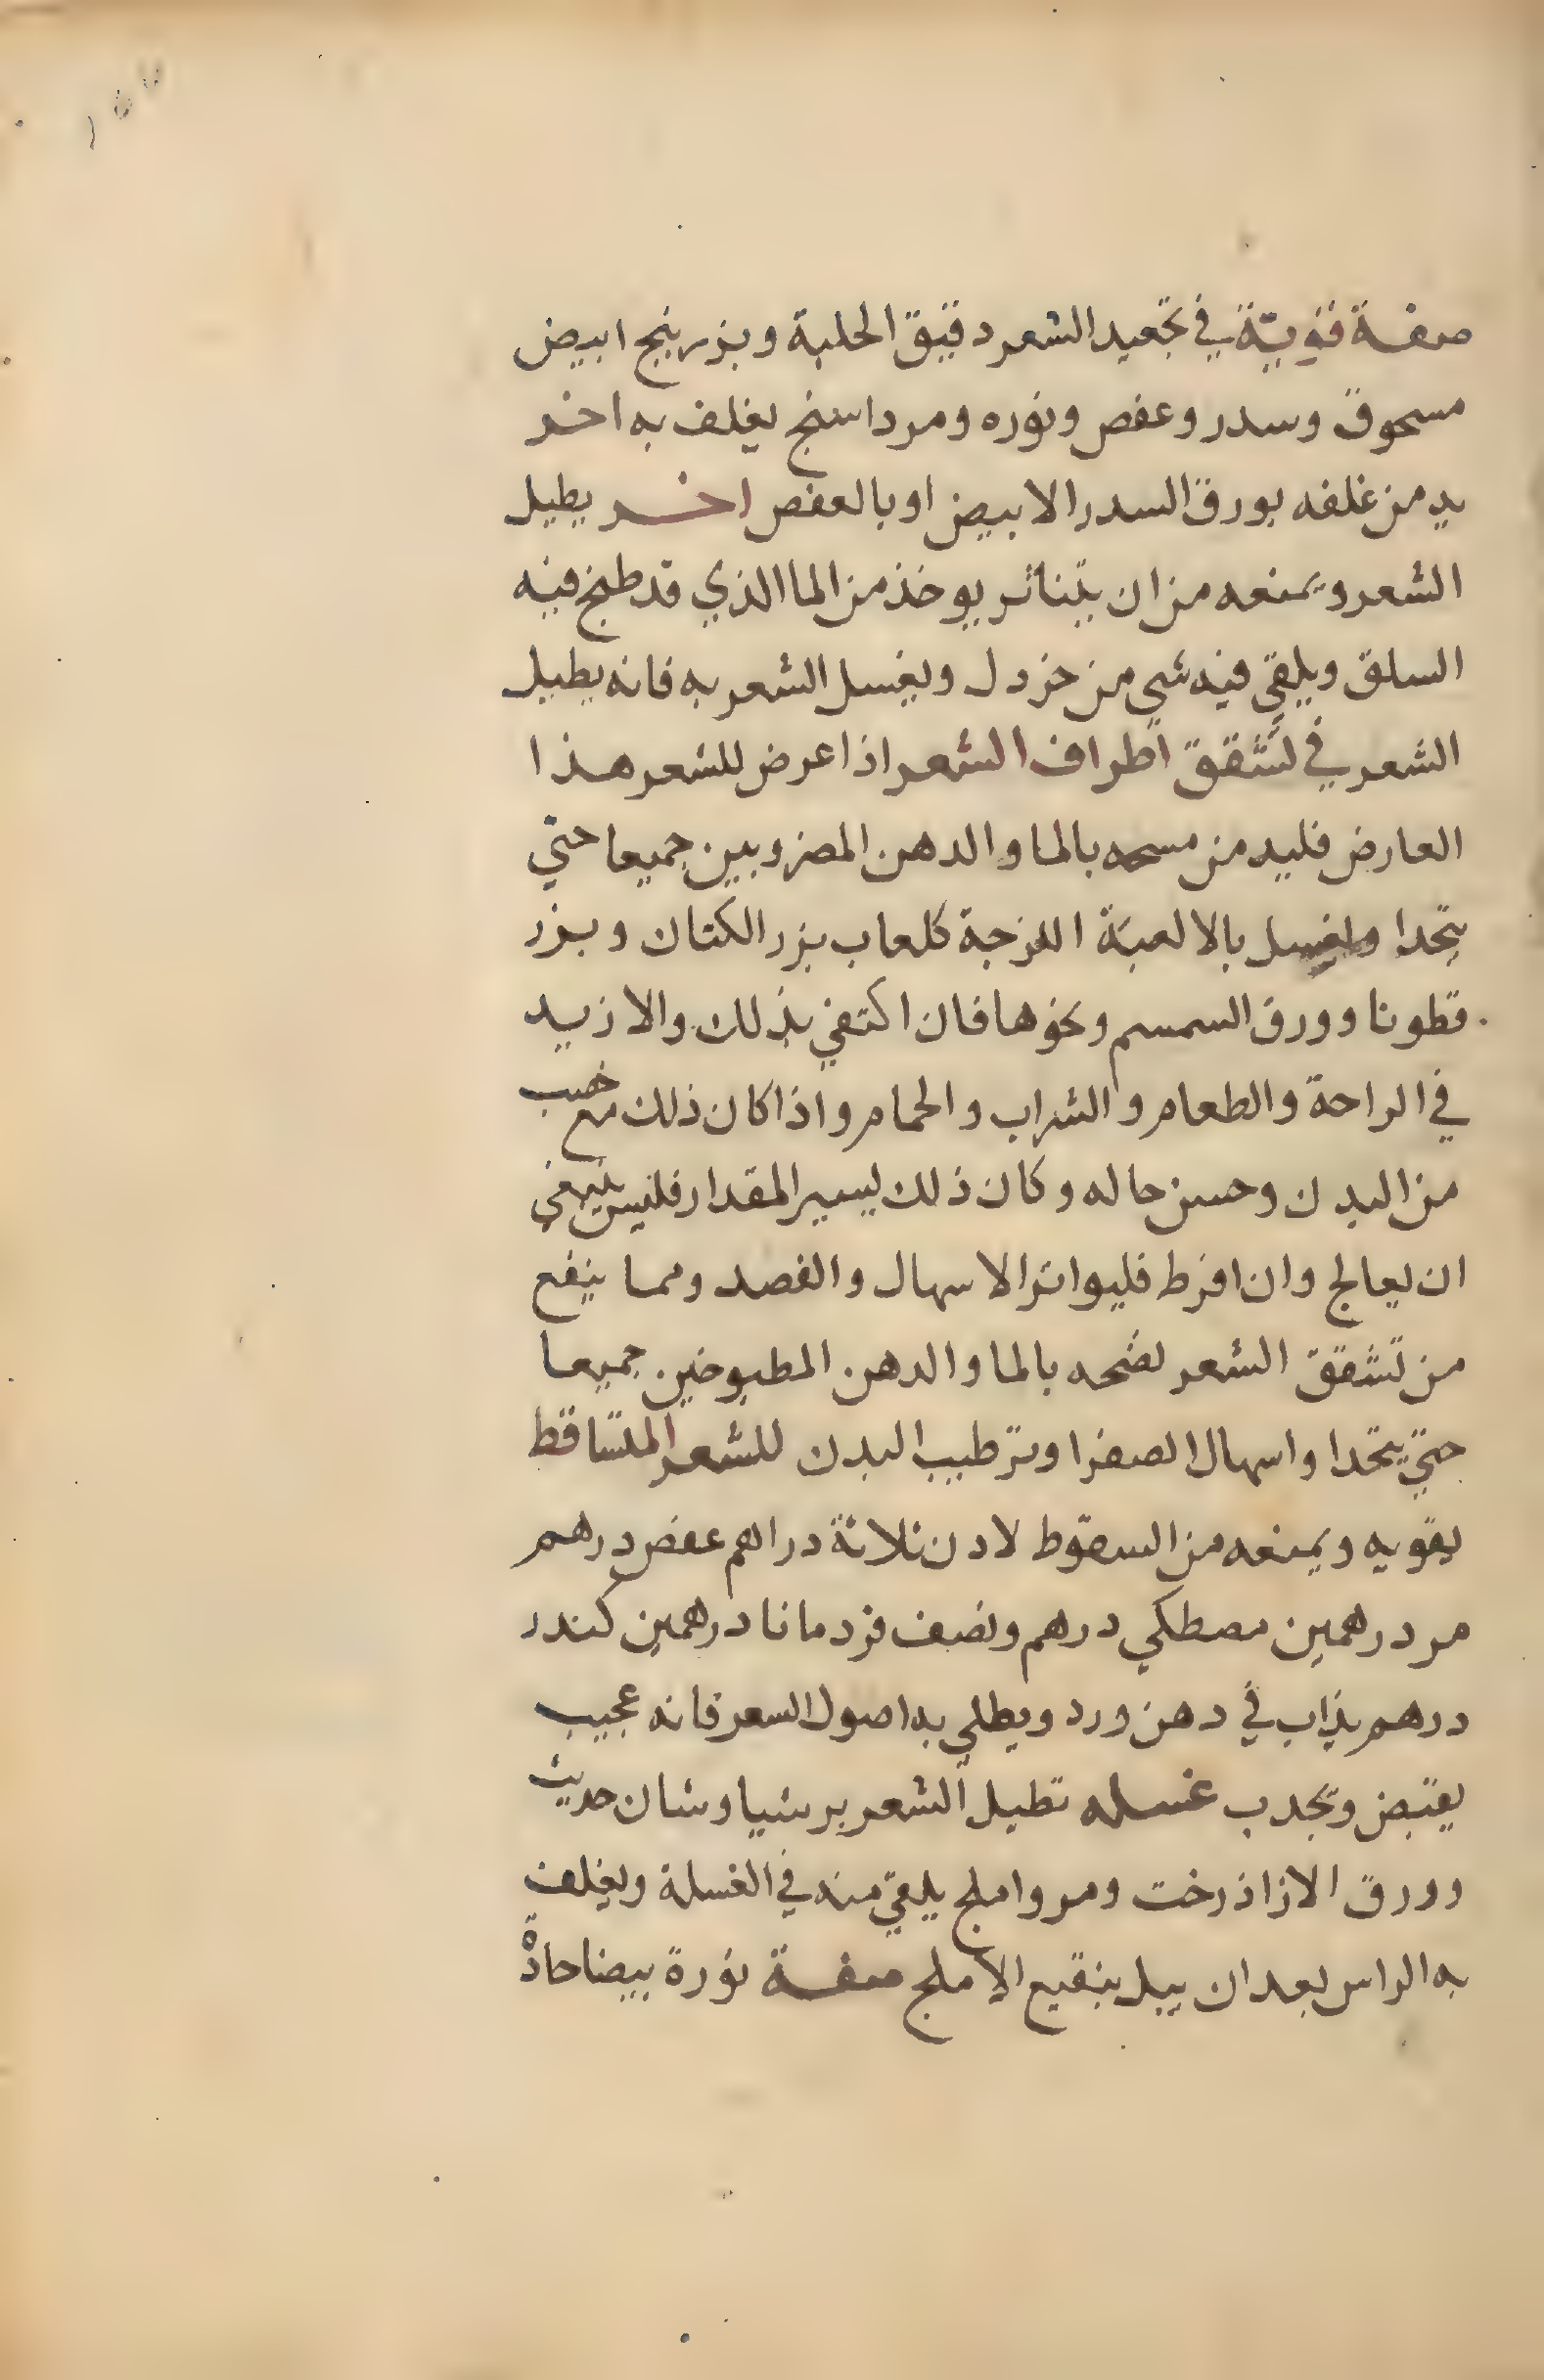 صفة قوية في تجعيد الشعر دقيق الحلبة وبزر بنج ابيض
مسحوق وسدر وعفص ونوره ومرداسنج يغلف به اخر
يدمن غلفه بورق السدر الابيض او بالعفص اخر يطيل
الشعر ويمنعه من ان يتناثر يوخذ من الما الذي قد طبخ فيه
السلق ويلقي فيه شي من خردل ويغسل الشعر به فانه يطيل
الشعر في تشقق اطراف الشعر اذا عرض للشعر هذا
العارض فليدمن مسحه بالما والدهن المضروبين جميعا حتي
يتحدا وليغسل بالالعبة اللزجة كلعاب بزر الكتان وبزر
قطونا وورق السمسم ونحوها فان اكتفي بذلك والا زيد
في الراحة والطعام والشراب والحمام واذا كان ذلك مع خصب
من البدن وحسن حاله وكان ذلك يسير المقدار فليس ينبغي
ان يعالج وان افرط فليواتر الاسهال والفصد ومما ينفع
من تشقق الشعر نضحه بالما والدهن المطبوخين جميعا
حتي يتحدا واسهال الصفرا وترطيب البدن للشعر المتساقط
يقويه ويمنعه من السقوط لادن ثلاثة دراهم عفص درهم
مر درهمين مصطكي درهم ونصف قردمانا درهمين كندر
درهم يذاب في دهن ورد ويطلي به اصول السعر فانه عجيب
يقبض ويجدب غسله تطيل الشعر برشياوشان حديث
وورق الازاذرخت ومر واملج يلقي منه في الغسلة ويغلف
به الراس بعد ان يبل بنقيع الاملج صفة نورة بيضا حادة